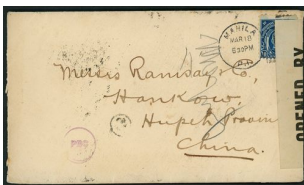 MANILA
MAR 18
6 30 PM
P.I.
Messrs Ramsay & Co.,
Hankow,
Hupeh Provin
China.
OPENED BY